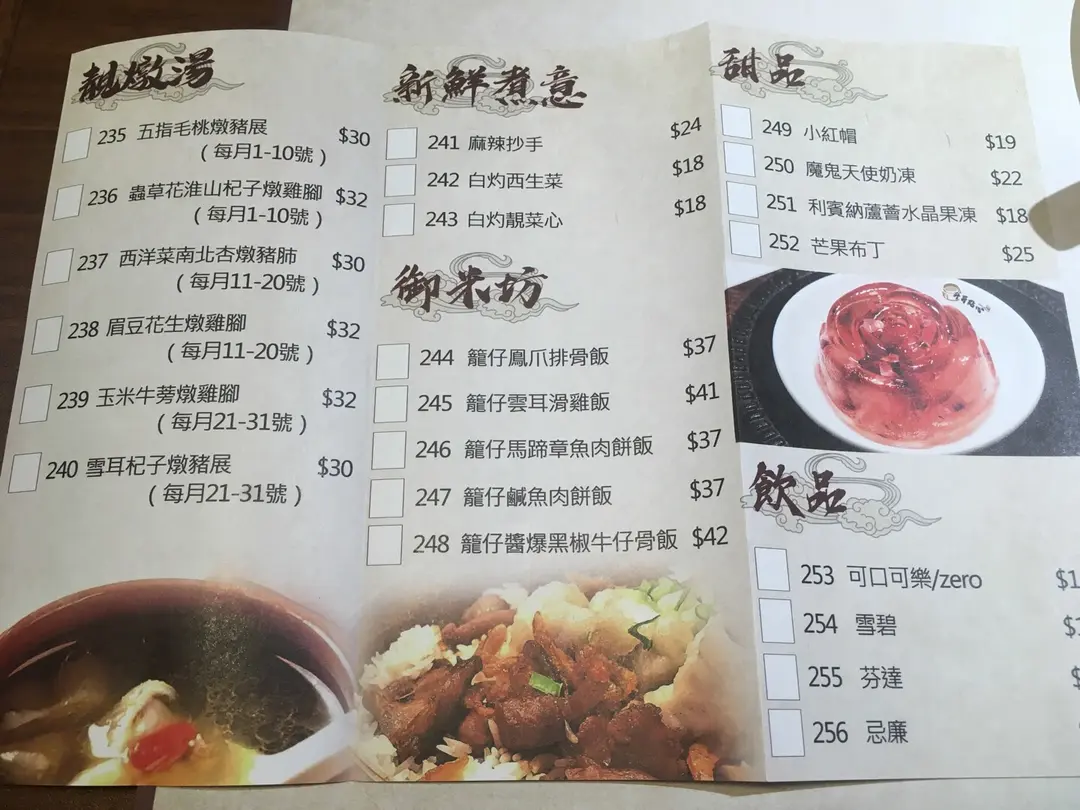 靚燉湯
235 五指毛桃燉豬展 $30
（每月1-10號）
236 蟲草花淮山杞子燉雞腳 $32
（每月1-10號）
237 西洋菜南北杏燉豬肺 $30
（每月11-20號）
238 眉豆花生燉雞腳 $32
（每月11-20號）
239 玉米牛蒡燉雞腳 $32
（每月21-31號）
240 雪耳杞子燉豬展 $30
（每月21-31號）
新鮮煮意
241 麻辣抄手 $24
242 白灼西生菜 $18
243 白灼靚菜心 $18
御米坊
244 籠仔鳳爪排骨飯 $37
245 籠仔雲耳滑雞飯 $41
246 籠仔馬蹄章魚肉餅飯 $37
247 籠仔鹹魚肉餅飯 $37
248 籠仔醬爆黑椒牛仔骨飯 $42
甜品
249 小紅帽 $19
250 魔鬼天使奶凍 $22
251 利賓納蘆薈水晶果凍 $18
252 芒果布丁 $25
飲品
253 可口可樂/zero
254 雪碧
255 芬達
256 忌廉